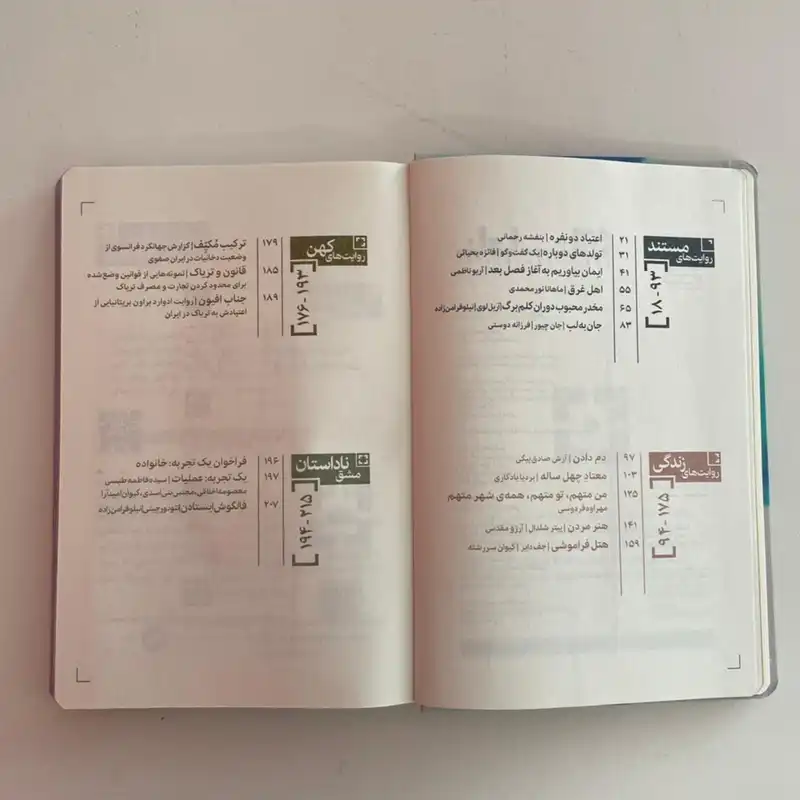 روایت‌های مستند
[۱۸-۹۳]
۲۱ اعتیاد دونفره | بنفشه رحمانی
۳۱ تولدهای دوباره | یک گفت‌وگو | فائزه یحیائی
۴۱ ایمان بیاوریم به آغاز فصل بعد | آریو ناظمی
۵۵ اهل غرق | ماهانا نورمحمدی
۶۵ مخدر محبوب دوران کلم‌برگ | آریل لوی | نیلوفر امن‌زاده
۸۳ جان به لب | جان چیور | فرزانه دوستی
روایت‌های زندگی
[۹۴-۱۷۵]
۹۷ دم دادن | آرش صادق‌بیگی
۱۰۳ معتاد چهل ساله | بردیا یادگاری
۱۲۵ من متهم، تو متهم، همه‌ی شهر متهم
مهراوه فردوسی
۱۴۱ هنر مردن | پیتر شلدال | آرزو مقدسی
۱۵۹ هتل فراموشی | جف دایر | کیوان سررشته
روایت‌های کهن
[۱۷۶-۱۹۳]
۱۷۹ ترکیب مُکَیِّف | گزارش جهانگرد فرانسوی از
وضعیت دخانیات در ایران صفوی
۱۸۵ قانون و تریاک | نمونه‌هایی از قوانین وضع‌شده
برای محدود کردن تجارت و مصرف تریاک
۱۸۹ جناب افیون | روایت ادوارد براون بریتانیایی از
اعتیادش به تریاک در ایران
مشق ناداستان
[۱۹۴-۲۱۵]
۱۹۶ فراخوان یک تجربه: خانواده
۱۹۷ یک تجربه: عملیات | سیده فاطمه طبسی
معصومه اخلاقی، مجتبی بنی‌اسدی، کیوان امیدآرا
۲۰۷ فالگوش ایستادن | تئودور چینی | نیلوفر امن‌زاده